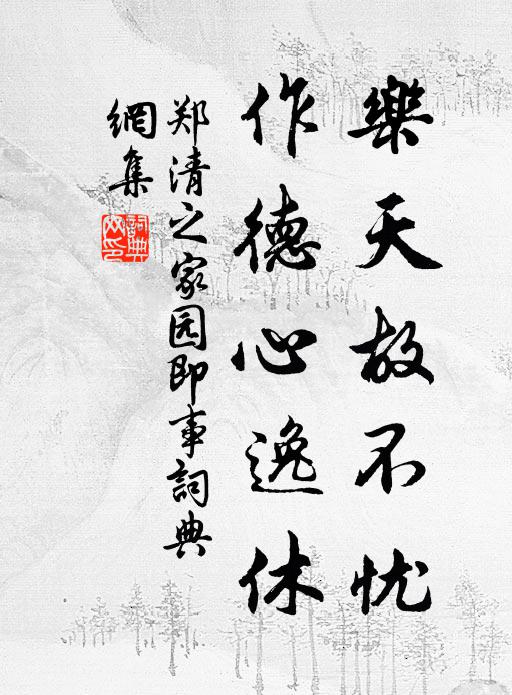 樂天故不忧
作德心逸休
郑清之家园即事詞典
網集
詞典网印